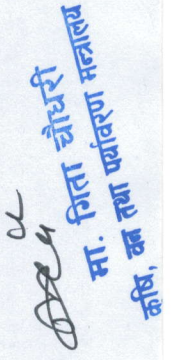 मा. गिता चौधरी
कृषि, वन तथा पर्यावरण मन्त्रालय